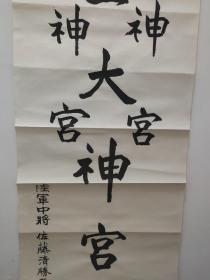 神宮
大神宮
神宮
陸軍中將 佐藤清勝